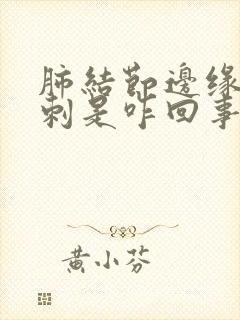 肺結節邊缘
刺是咋回事
黄小芬